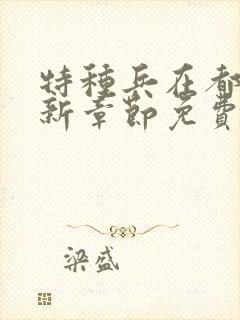 特種兵在都
新章節免費
梁盛